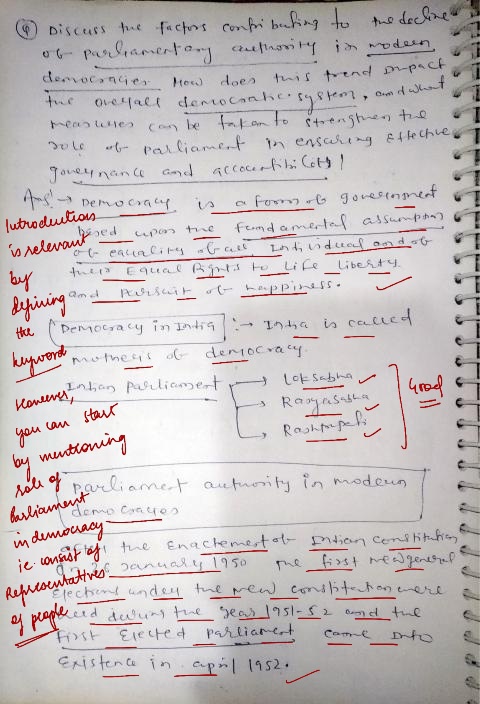 Q Discuss the factors contributing to the decline
of parliamentary authority in modern
democracies How does this trend impact
the overall democratic system, and what
measures can be taken to strengthen the
role of parliament in ensuring effective
governance and accountibility!
Ans! → Democracy is a form of government
based upon the fundamental assumption
of equality of all Individual and of
their Equal Rights to Life Liberty
and Pursuit of happiness.
Democracy in India :→ India is called
mothers of democracy.
Indian parliament
→ Loksabha
→ Rajyasabha
→ Rashtrapati
Good
parliament authority in modern
democracies
the Enactement of Indian constitution
26 January 1950 the first new general
Elections under the new constitution were
during the year 1951-52 and the
First Elected parliament came into
Existence in april 1952.
Introduction
is relevant
by
defining
the
keyword
However,
you can start
by mentioning
role of
Parliament
in democracy
i.e. consist of
Representatives
of people